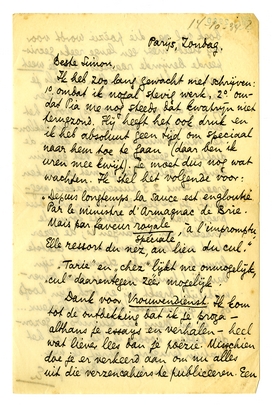 14-10-34?
Parijs, Zondag.
Beste Simon,
Ik heb zoo lang gewacht met schrijven:
1º omdat ik nogal stevig werk, 2º om-
dat Pia me nog steeds dat kwatrijn niet
terugzond. Hij heeft het ook druk en
ik heb absoluut geen tijd om speciaal
naar hem toe te gaan (daar ben ik
uren mee kwijt), je moet dus nog wat
wachten. Ik stel het volgende voor:
„Depuis longtemps la Tance est engloutie
Par le ministre d'Armagnac de Brie.
Mais par faveur royale, à l'impromptu
spéciale
Elle ressort du nez, au lieu du cul."
„Tarie" en „chez" lijkt me onmogelijk,
„cul" daarentegen zéé mogelijk.
Dank voor Vrouwendienst. Ik kom
tot de ontdekking dat ik je proza –
althans je essays en verhalen – heel
wat liever lees dan je poëzie. Misschien
doe je er verkeerd aan om nu alles
uit die verzencahiers te publiceeren. Een